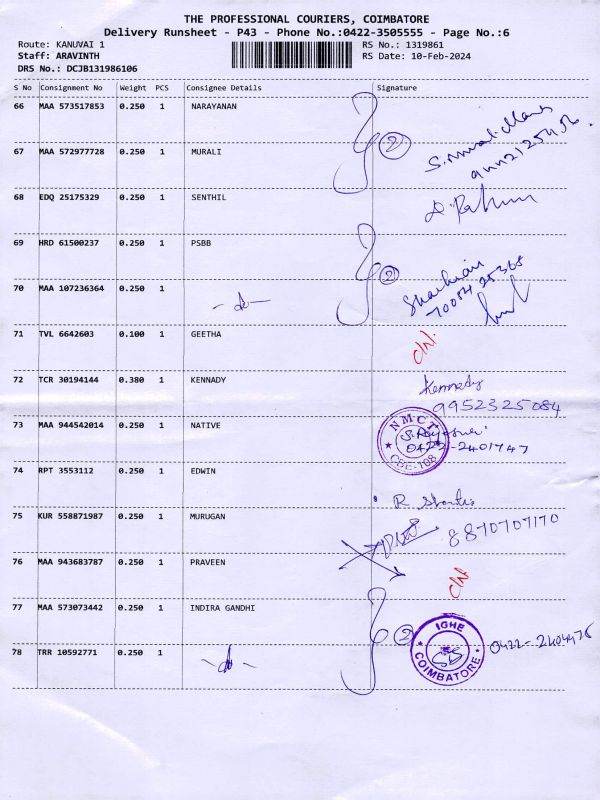 THE PROFESSIONAL COURIERS, COIMBATORE
Delivery Runsheet - P43 - Phone No.:0422-3505555 - Page No.:6
Route: KANUVAI 1 RS No.: 1319861
Staff: ARAVINTH RS Date: 10-Feb-2024
DRS No.: DCJB131986106
S No Consignment No Weight PCS Consignee Details Signature
66 MAA 573517853 0.250 1 NARAYANAN
67 MAA 572977728 0.250 1 MURALI 2
68 EDQ 25175329 0.250 1 SENTHIL
69 HRD 61500237 0.250 1 PSBB
70 MAA 107236364 0.250 1 2
71 TVL 6642603 0.100 1 GEETHA
72 TCR 30194144 0.380 1 KENNADY Kennady
9952325084
73 MAA 944542014 0.250 1 NATIVE NMCT
0422-2401747
CBE-108
74 RPT 3553112 0.250 1 EDWIN
75 KUR 558871987 0.250 1 MURUGAN 8870707170
76 MAA 943683787 0.250 1 PRAVEEN
77 MAA 573073442 0.250 1 INDIRA GANDHI 2 IGHE
78 TRR 10592771 0.250 1 COIMBATORE 0422-2404476